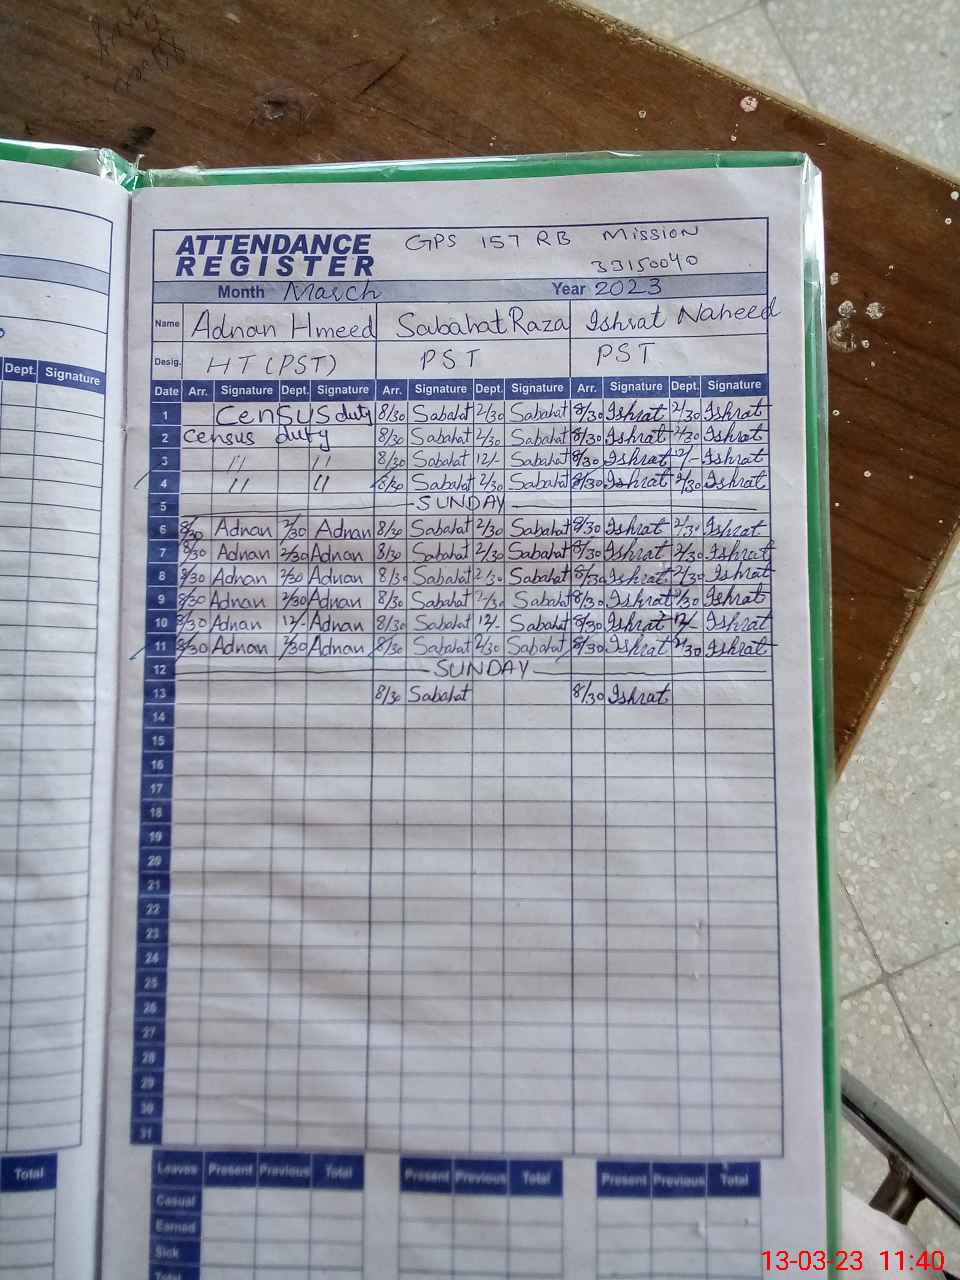 ATTENDANCE REGISTER GPS 157 RB Mission
33150040
Month March Year 2023
Name Adnan Hmeed Sabahat Raza Ishrat Naheed
Desig. HT (PST) PST PST
Dept. Signature
Date Arr. Signature Dept. Signature Arr. Signature Dept. Signature Arr. Signature Dept. Signature
1 Census duty 8/30 Sabahat 2/30 Sabahat 8/30 Ishrat 2/30 Ishrat
2 Census duty 8/30 Sabahat 2/30 Sabahat 8/30 Ishrat 2/30 Ishrat
3 " " 8/30 Sabahat 12/- Sabahat 8/30 Ishrat 12/- Ishrat
4 " " 8/30 Sabahat 2/30 Sabahat 8/30 Ishrat 2/30 Ishrat
5 SUNDAY
6 8/30 Adnan 2/30 Adnan 8/30 Sabahat 2/30 Sabahat 8/30 Ishrat 2/30 Ishrat
7 8/30 Adnan 2/30 Adnan 8/30 Sabahat 2/30 Sabahat 8/30 Ishrat 2/30 Ishrat
8 8/30 Adnan 2/30 Adnan 8/30 Sabahat 2/30 Sabahat 8/30 Ishrat 2/30 Ishrat
9 8/30 Adnan 2/30 Adnan 8/30 Sabahat 2/30 Sabahat 8/30 Ishrat 2/30 Ishrat
10 8/30 Adnan 12/- Adnan 8/30 Sabahat 12/- Sabahat 8/30 Ishrat 12/- Ishrat
11 8/30 Adnan 2/30 Adnan 8/30 Sabahat 2/30 Sabahat 8/30 Ishrat 2/30 Ishrat
12 SUNDAY
13 8/30 Sabahat 8/30 Ishrat
14
15
16
17
18
19
20
21
22
23
24
25
26
27
28
29
30
31
Total
Leaves Present Previous Total Present Previous Total Present Previous Total
Casual
Earned
Sick
Total
13-03-23 11:40